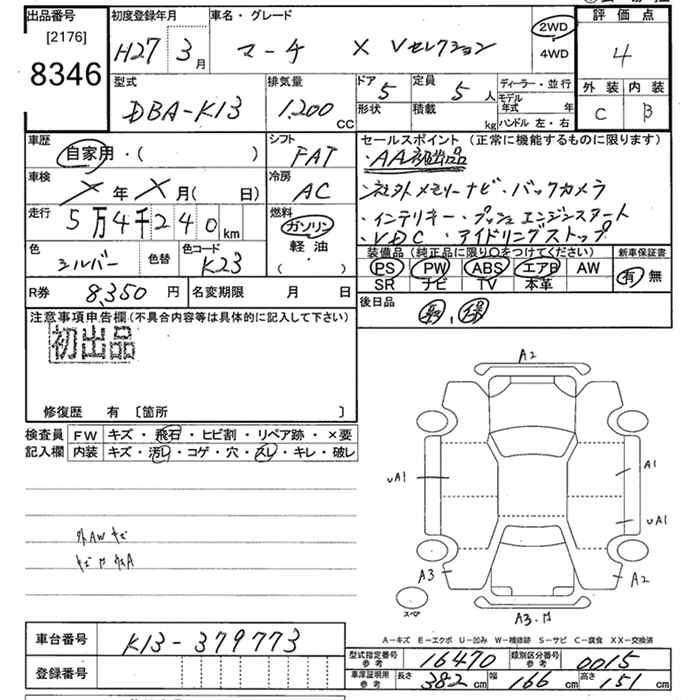 出品番号
[2176]
8346
初度登録年月
H27 3月
車名・グレード
マーチ X Vセレクション
2WD
4WD
評価点
4
外装 内装
C B
型式
DBA-K13
排気量
1,200 CC
ドア 5
形状
定員 5 人
積載 kg
ディーラー・並行
モデル年式 年
ハンドル 左・右
車歴
自家用・( )
車検
年 月( 日)
走行
5万4千240km
色
シルバー
色替
色コード
K23
シフト
FAT
冷房
AC
燃料
ガソリン
軽油
( ・ )
セールスポイント(正常に機能するものに限ります)
・AA初出品
・社外メモリーナビ・バックカメラ
・インテリキー・プッシュエンジンスタート
・VDC・アイドリングストップ
装備品(純正品に限り○をつけてください)
PS PW ABS エアB AW
SR ナビ TV 本革
新車保証書
有 無
R券 8,350 円
名変期限 月 日
後日品
注意事項申告欄(不具合内容等は具体的に記入して下さい)
初出品
修復歴 有 〔箇所 〕
検査員記入欄
FW キズ・飛石・ヒビ割・リペア跡・×要
内装 キズ・汚レ・コゲ・穴・スレ・キレ・破レ
外AWキズ
A2
UA1
A1
UA1
A3
A2
スペア
A3.
A-キズ E-エクボ U-凹み W-補修跡 S-サビ C-腐食 XX-交換済
車台番号
K13-379773
登録番号
型式指定番号 参考
16470
類別区分番号 参考
0015
車庫証明用 参考
長さ 382 cm
幅 166 cm
高さ 151 cm